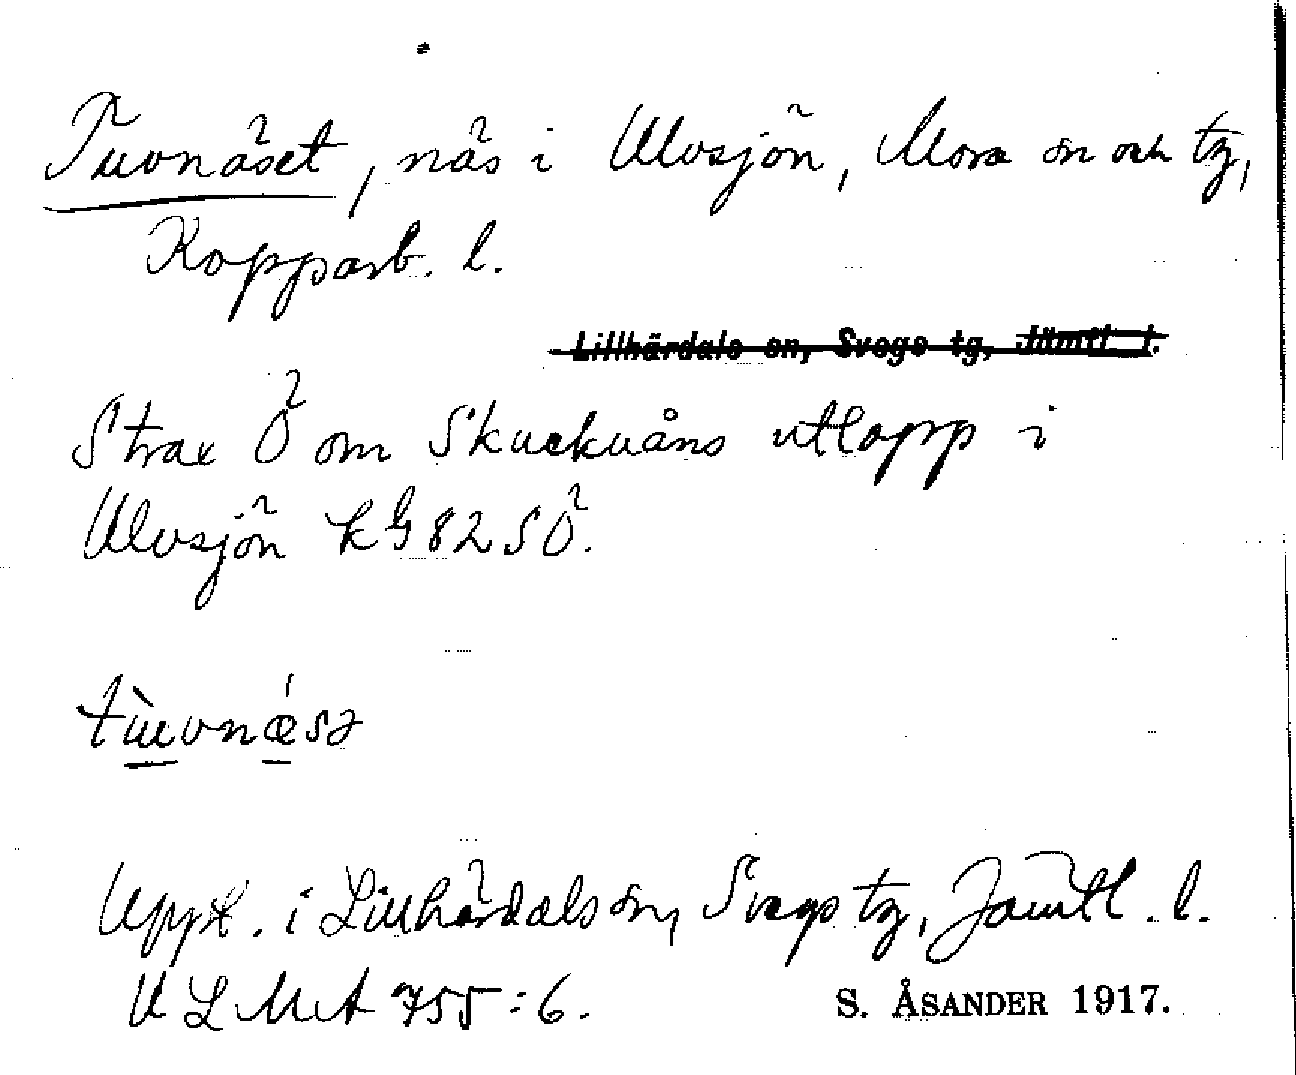 Tuvnäset, näs i Ulvsjön, Mora sn och tg,
Kopparb. l.
Lillhärdals sn, Svegs tg, Jämtl l.
Strax Ö om Skuckuåns utlopp i
Ulvsjön kG 82 SÖ.
tùvnǽsə
Uppt. i Lillhärdals sn, Svegs tg, Jämtl. l.
ULMA 755:6.
S. ÅSANDER 1917.